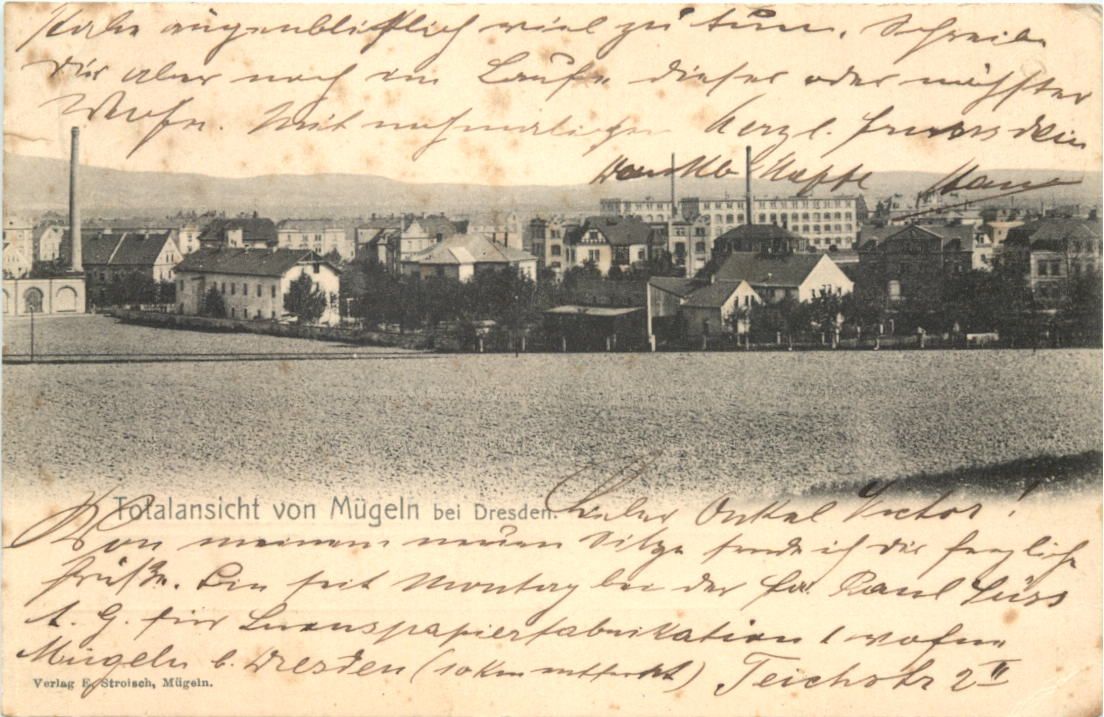 Habe augenblicklich viel zu tun. Schreibe
Dir aber noch im Laufe dieser oder nächster
Woche. Mit nochmaligen herzl. Gruss dein
dankb Neffe Hans
Totalansicht von Mügeln bei Dresden.
Lieber Onkel Victor!
Von meinem neuen Sitze sende ich dir herzliche
Grüße. Bin seit Montag bei der Fa. Paul Süss
A. G. für Luxuspapierfabrikation (wohne
Mügeln b. Dresden (10 km entfernt) Teichstr 2 II
Verlag E. Stroisch, Mügeln.